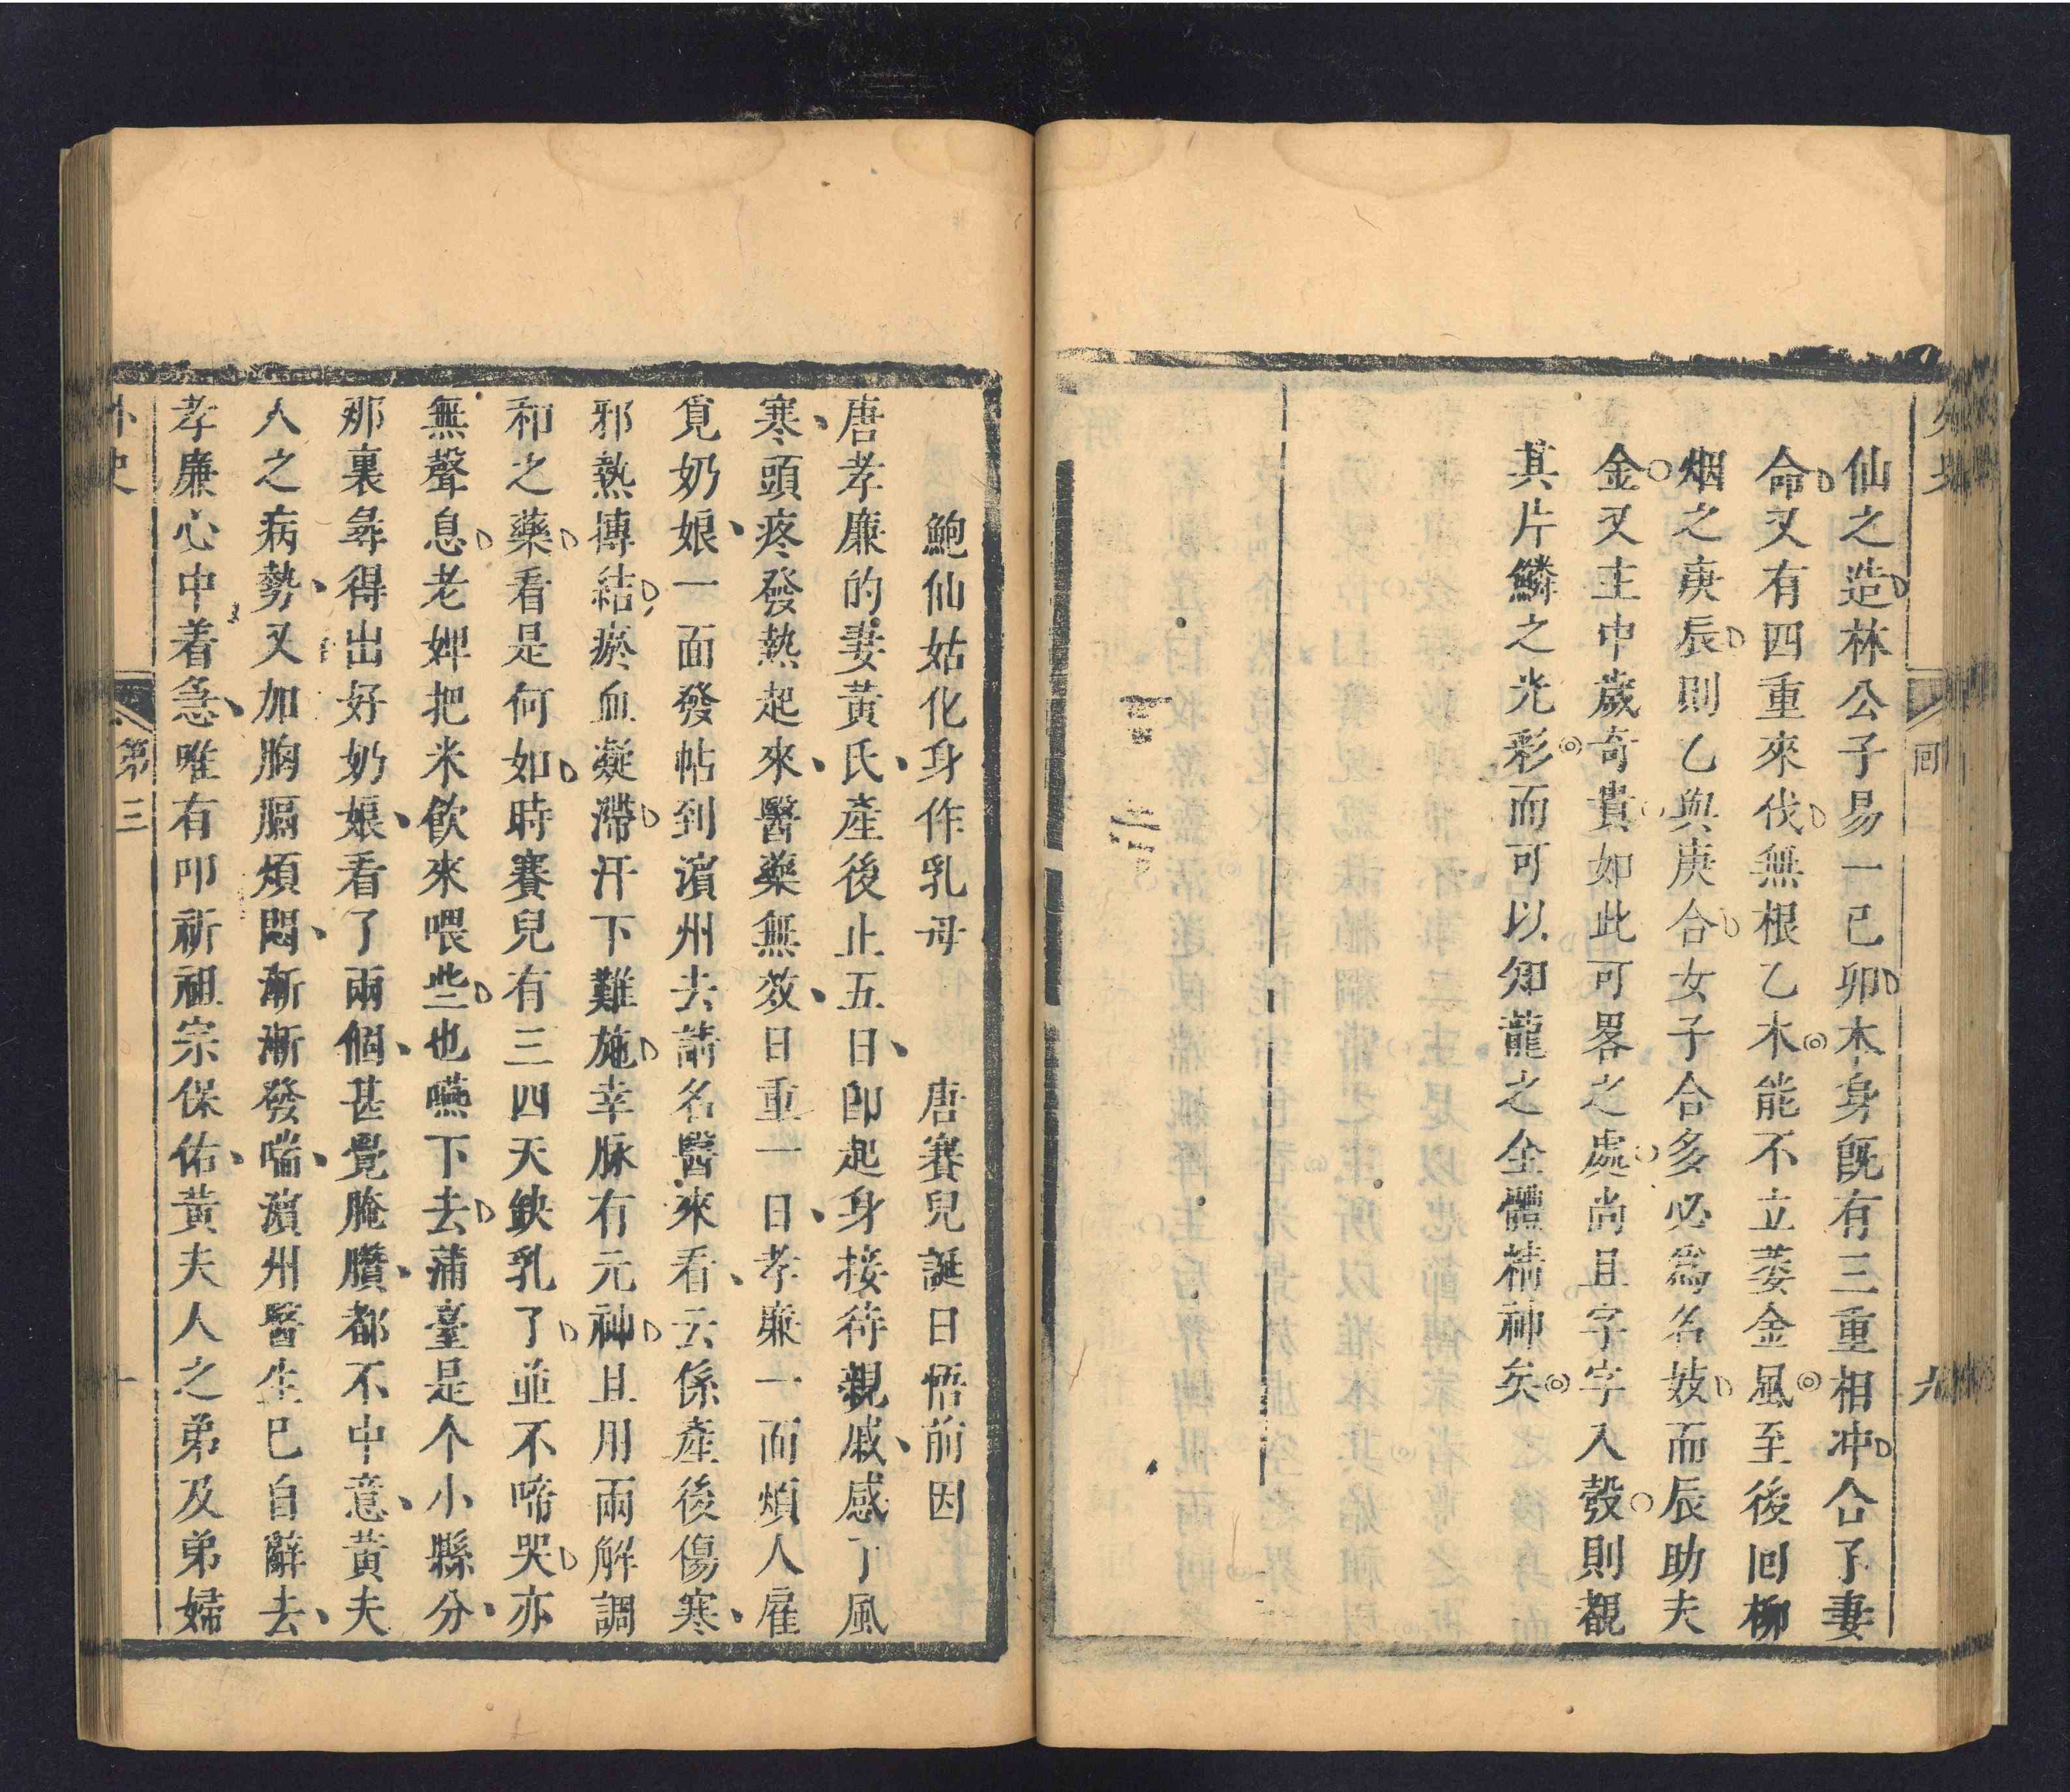 仙之造林公子易一己卯木身既有三重相冲合子妻
命又有四重來伐無根乙木能不立萎金風至後囘柳
烟之庚辰則乙與庚合女子合多必爲名妓而辰助夫
金又主中歲奇貴如此可畧之處尚且字字入彀則觀
其片鱗之光彩而可以知龍之全體精神矣
鮑仙姑化身作乳母 唐賽兒誕日悟前因
唐孝廉的妻黃氏産後止五日卽起身接待親戚感了風
寒頭疼發熱起來醫藥無效日重一日孝廉一而煩人雇
覓奶娘一面發帖到濵州去請名醫來看云係産後傷寒
邪熱摶結瘀血凝滯汗下難施幸脉有元神且用兩解調
和之藥看是何如時賽兒有三四天缺乳了並不啼哭亦
無聲息老婢把米飲來喂些也嚥下去蒲臺是个小縣分
那裏尋得出好奶娘看了兩個甚覺腌臢都不中意黃夫
人之病勢又加胸膈煩悶漸漸發喘濵州醫生已自辭去
孝廉心中着急唯有叩祈祖宗保佑黃夫人之弟及弟婦
外史 第三